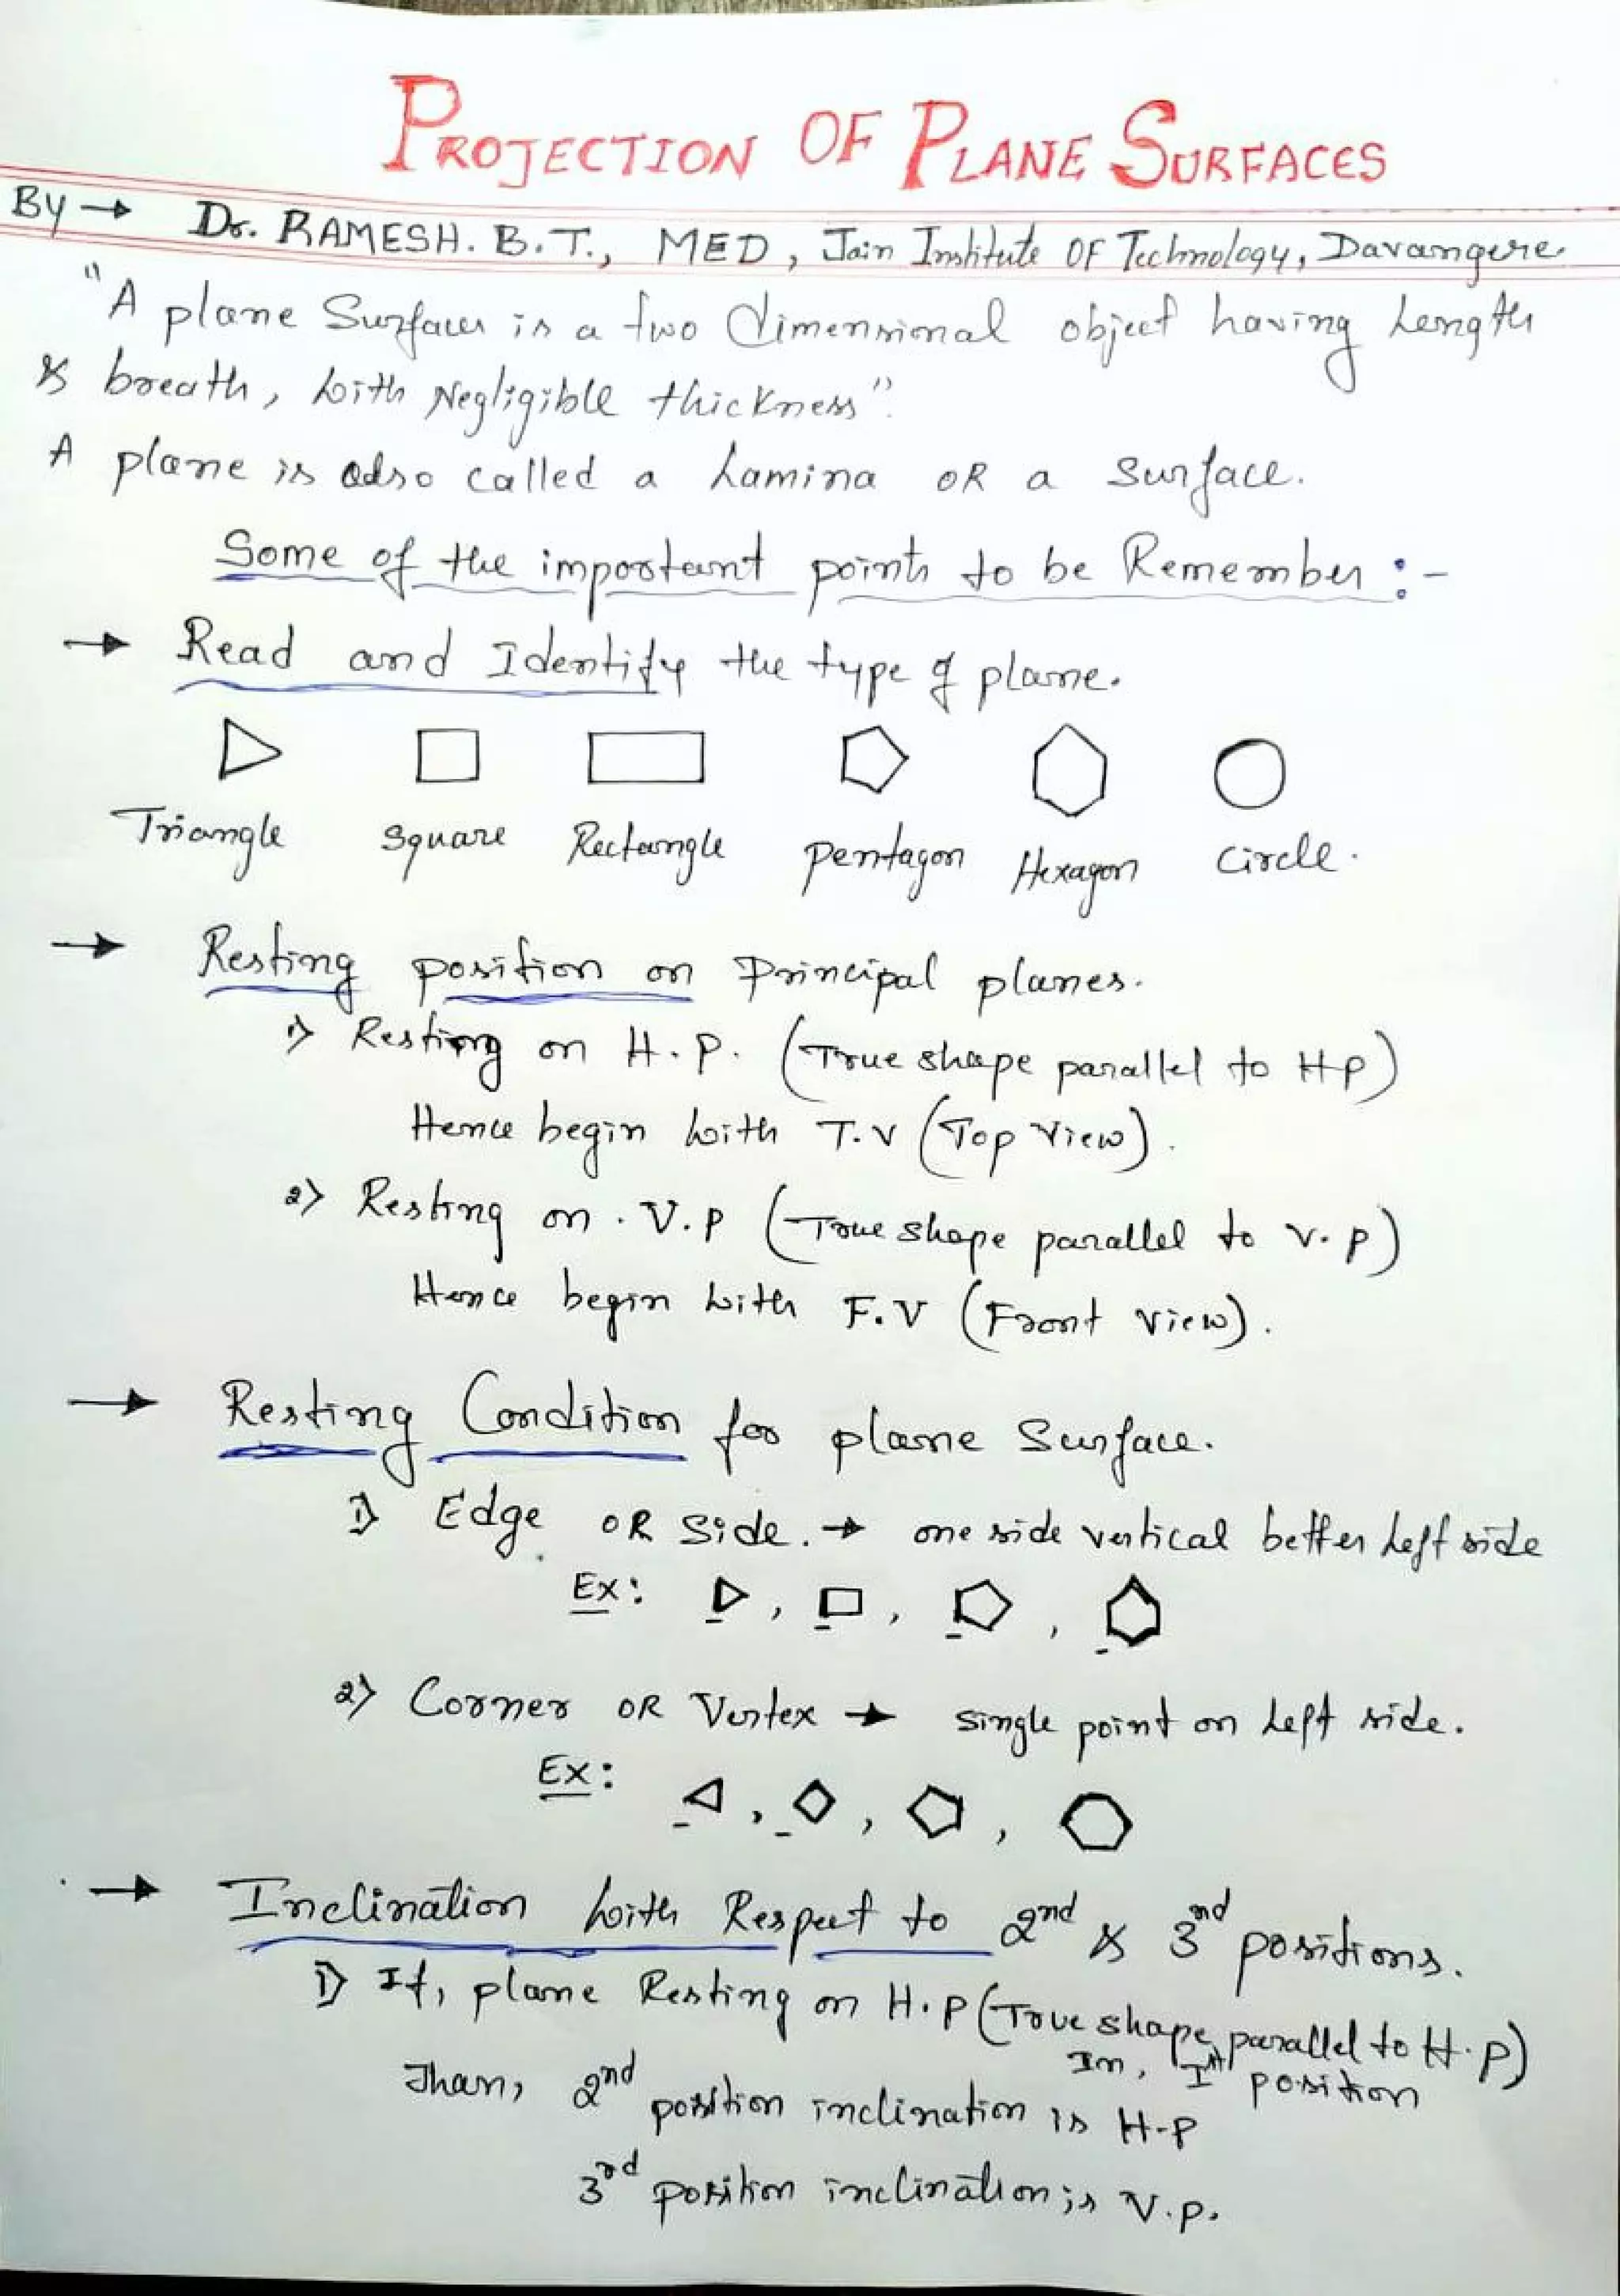 PROJECTION OF PLANE SURFACES
By → Dr. RAMESH. B.T., MED, Jain Institute OF Technology, Davangere.
"A plane Surfaces is a two dimensional object having Length
& breath, with Negligible thickness".
A plane is also called a Lamina OR a Surface.
Some of the important points to be Remember :-
→ Read and Identify the type of plane.
Triangle Square Rectangle pentagon Hexagon Circle.
→ Resting position on principal planes.
1) Resting on H.P. (True shape parallel to HP)
Hence begin with T.V (Top View).
2) Resting on . V.P (True shape parallel to V.P)
Hence begin with F.V (Front View).
→ Resting Condition for plane Surface.
1) Edge OR Side. → one side vertical better Left side
Ex: , , ,
2) Corner OR Vertex → single point on Left side.
Ex: , , ,
→ Inclination with Respect to 2nd & 3rd positions.
1) If, plane Resting on H.P (True shape parallel to H.P)
In, Ist position
Than, 2nd position inclination is H-P
3rd position inclination is V.P.